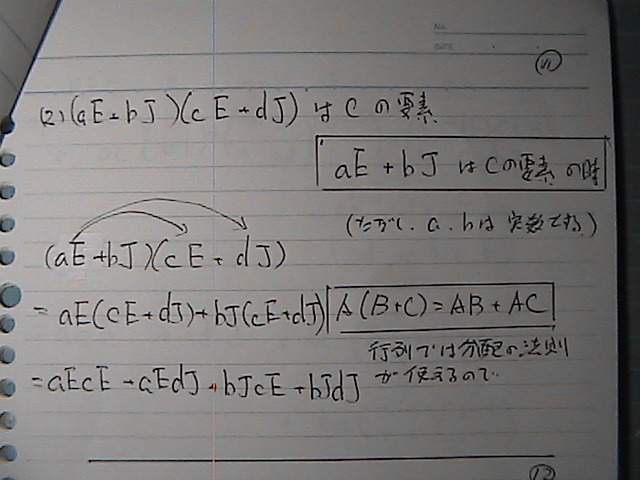 No.
DATE
⑪
(2) (aE+bJ)(cE+dJ) は C の要素
aE+bJ は Cの要素 の時
(ただし、a、bは 実数である)
(aE+bJ)(cE+dJ)
=aE(cE+dJ)+bJ(cE+dJ) A(B+C)=AB+AC
行列では分配の法則
が使えるので
=aEcE+aEdJ+bJcE+bJdJ
⑫